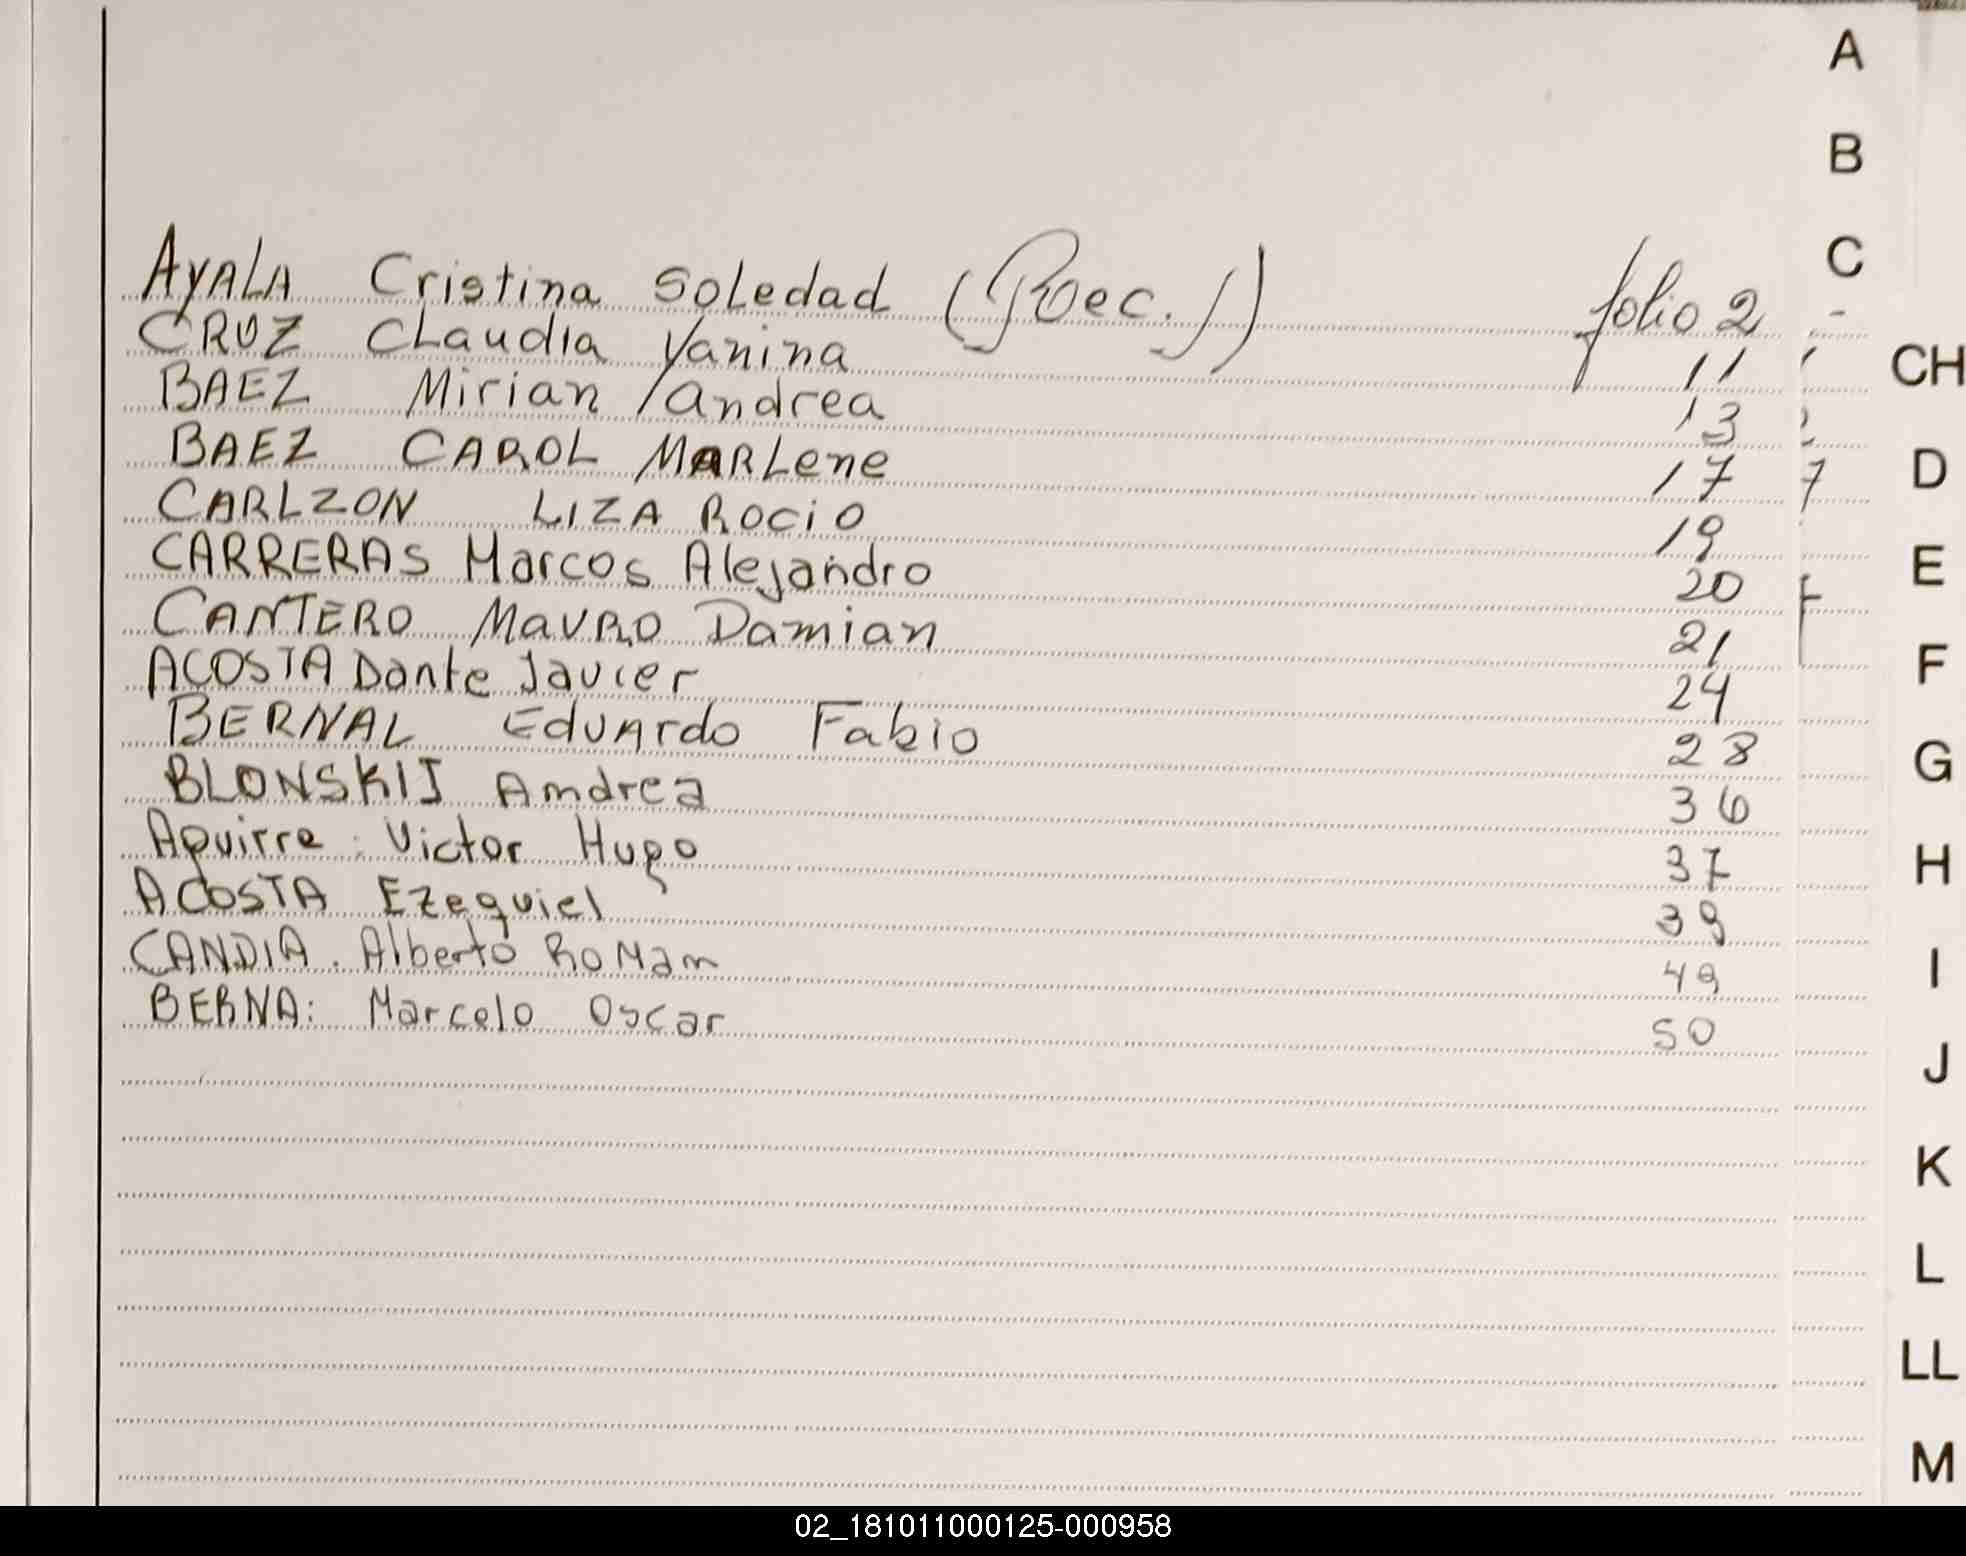 A
B
C
AYALA Cristina Soledad (Rec.) folio 2
CRUZ CLaudia Yanina 11
CH
BAEZ Mirian Andrea 13
BAEZ CAROL MARLene 17
D
CARLZON LIZA ROCIO 19
CARRERAS Marcos Alejandro 20
E
CANTERO MAURO Damian 21
ACOSTA Dante Javier 24
F
BERNAL EdUArdo Fabio 28
G
BLONSKIJ Andrea 36
Aguirre. Victor Hugo 37
H
ACOSTA Ezequiel 39
CANDIA. Alberto ROMan 49
I
BERNA: Marcelo Oscar 50
J
K
L
LL
M
02_181011000125-000958